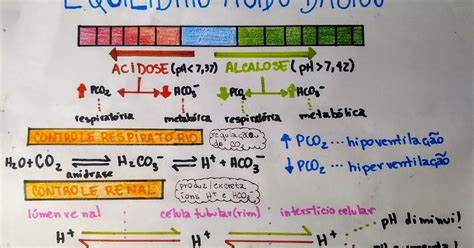 EQUILÍBRIO ÁCIDO BÁSICO
ACIDOSE (pH<7,37) ALCALOSE (pH>7,42)
PCO₂ HCO₃⁻ PCO₂ HCO₃⁻
respiratória metabólica respiratória metabólica
CONTROLE RESPIRATÓRIO regulação de CO₂ ↑ PCO₂ ... hipoventilação
H₂O+CO₂ ⇌ H₂CO₃⁻ ⇌ H⁺ + HCO₃⁻ ↓ PCO₂ ... hiperventilação
anidrase
CONTROLE RENAL produz/excreta íons H⁺ e HCO₃⁻
lúmen renal célula tubular (rim) interstício celular
H⁺ H⁺ H⁺ pH diminui!